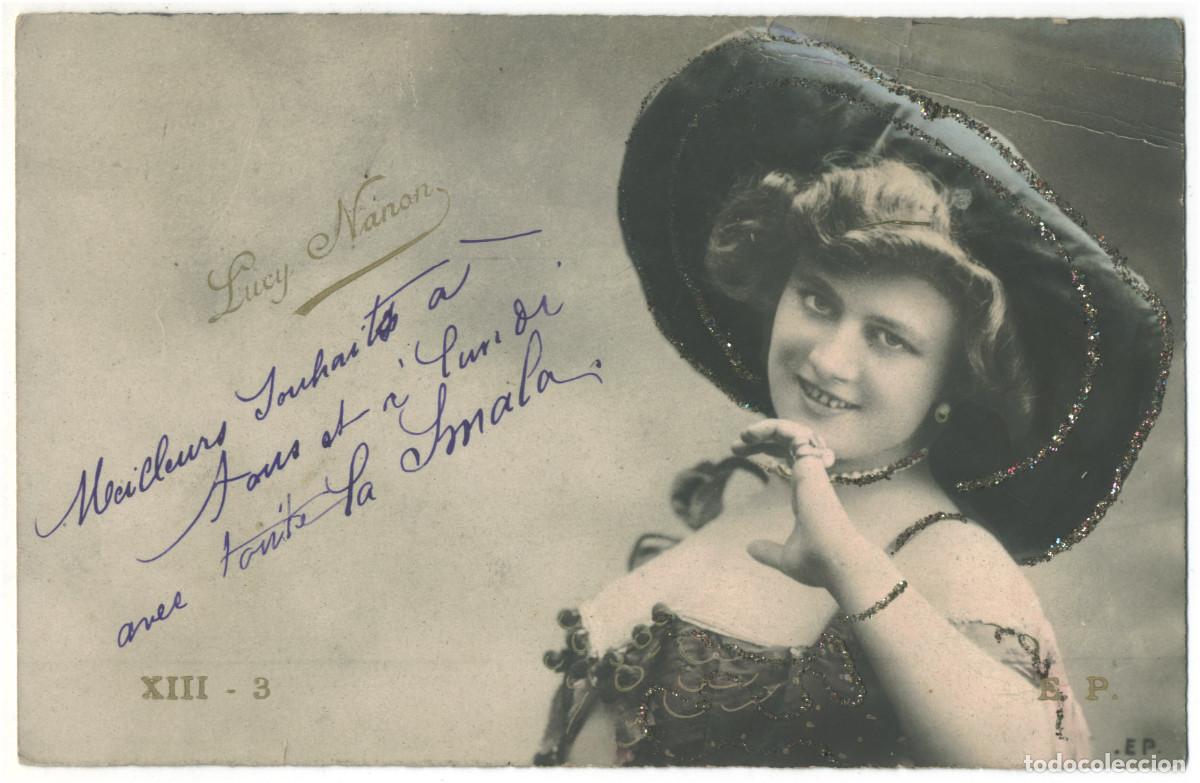 Lucy Nanon
Meilleurs Souhaits à
tous et à
avec toute la Smala.
XIII - 3
E. P.
.EP.
todocoleccion